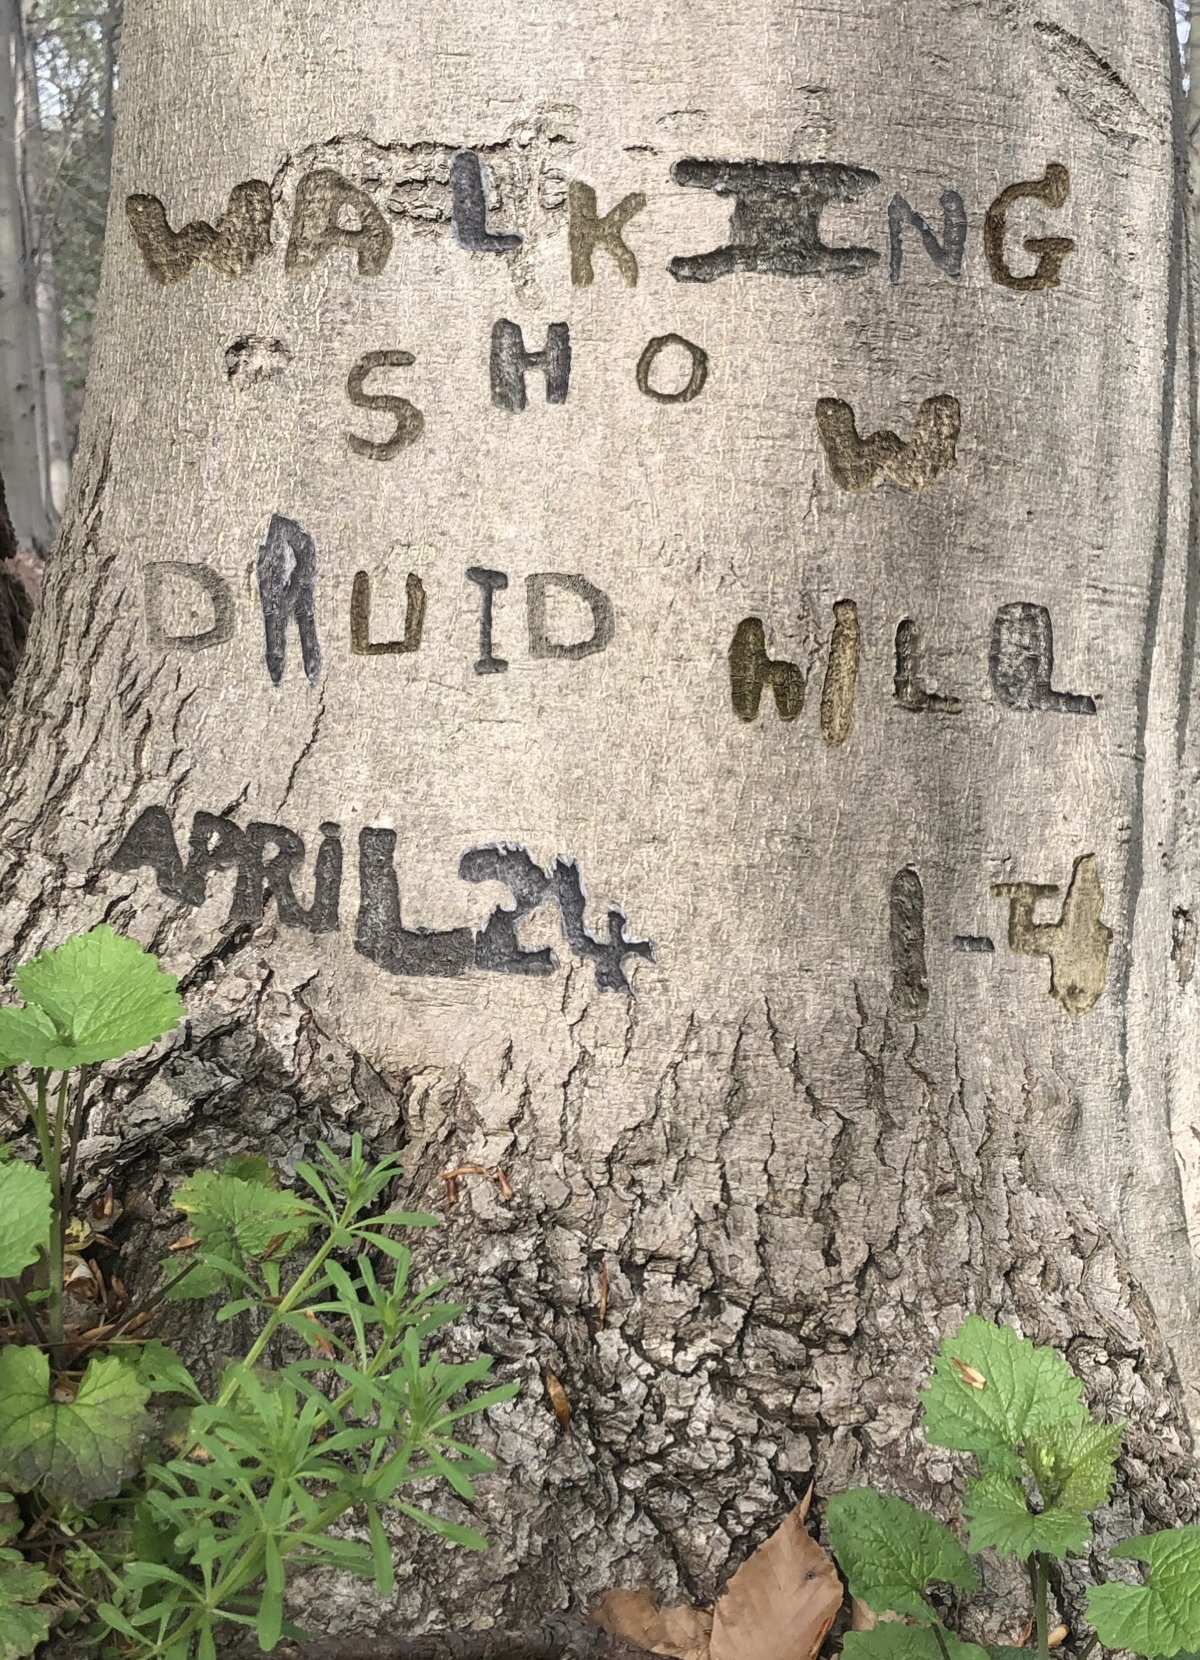 WALKING
SHOW
DRUID HILL
APRIL 24 1-4